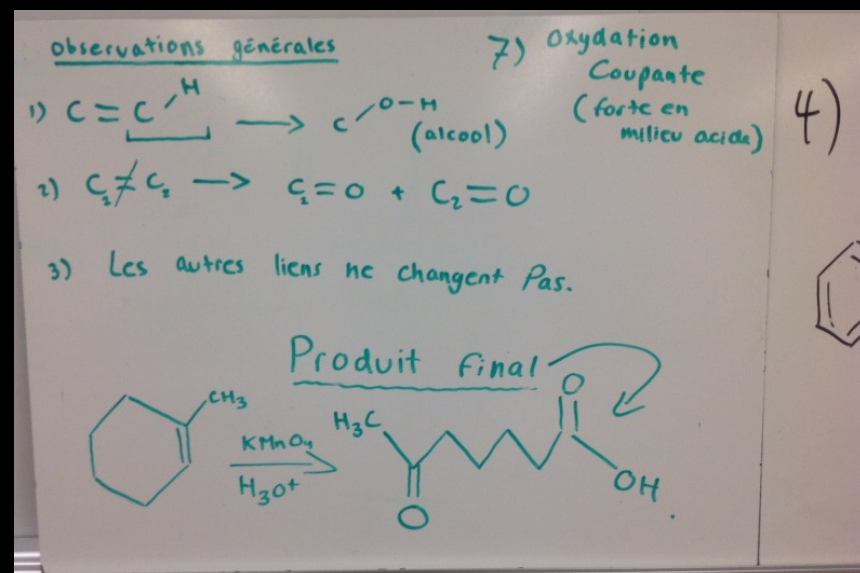 Observations générales
7) Oxydation
Coupante
(forte en
milieu acide)
4)
1) C = C H → C O-H
(alcool)
2) C₁ ≠ C₂ → C₁=O + C₂=O
3) Les autres liens ne changent Pas.
Produit final
CH₃
KMnO₄
H₃O⁺
H₃C
O
O
OH